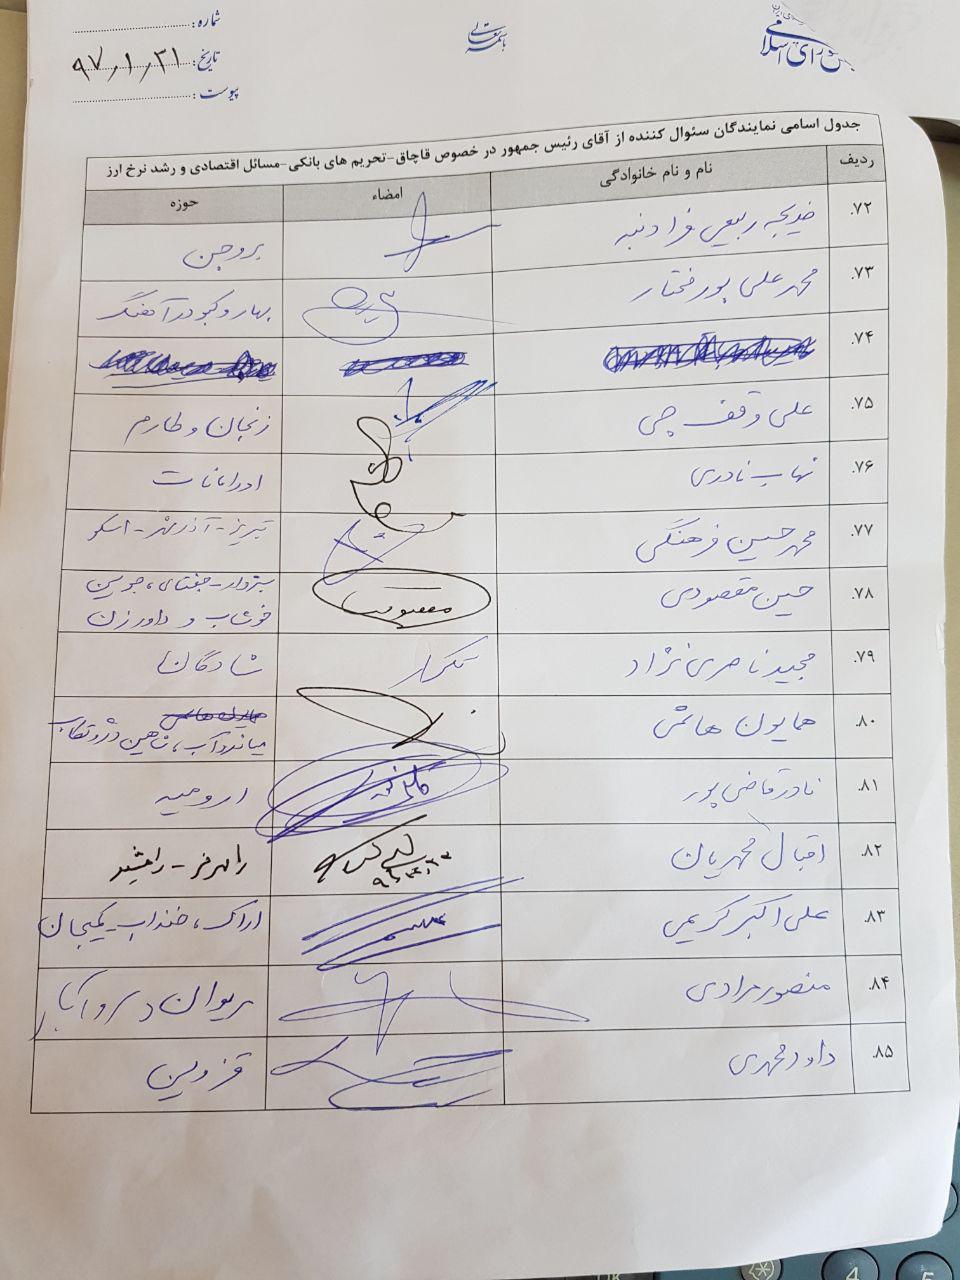 شورای اسلامی
باسمه تعالی
شماره:
تاریخ: ۹۷/۱/۳۱
پیوست:
جدول اسامی نمایندگان سئوال کننده از آقای رئیس جمهور در خصوص قاچاق-تحریم های بانکی-مسائل اقتصادی و رشد نرخ ارز
ردیف نام و نام خانوادگی امضاء حوزه
۷۲. خدیجه ربیعی فرادنبه بروجن
۷۳. محمدعلی پورمختار بهار و کبودرآهنگ
۷۴.
۷۵. علی وقف چی زنجان و طارم
۷۶. شهاب نادری اورامانات
۷۷. محمدحسین فرهنگی تبریز-آذرشهر-اسکو
۷۸. حسین مقصودی سبزوار-جغتای، جوین
خوشاب و داورزن
۷۹. مجید ناصری نژاد تکرار شادگان
۸۰. همایون هاشمی میاندوآب، شاهین دژ و تکاب
۸۱. نادر قاضی پور ارومیه
۸۲. اقبال محمدیان رامهرمز-رامشیر
۸۳. علی اکبر کریمی اراک، خنداب-کمیجان
۸۴. منصور مرادی مریوان و سروآباد
۸۵. داود محمدی قزوین